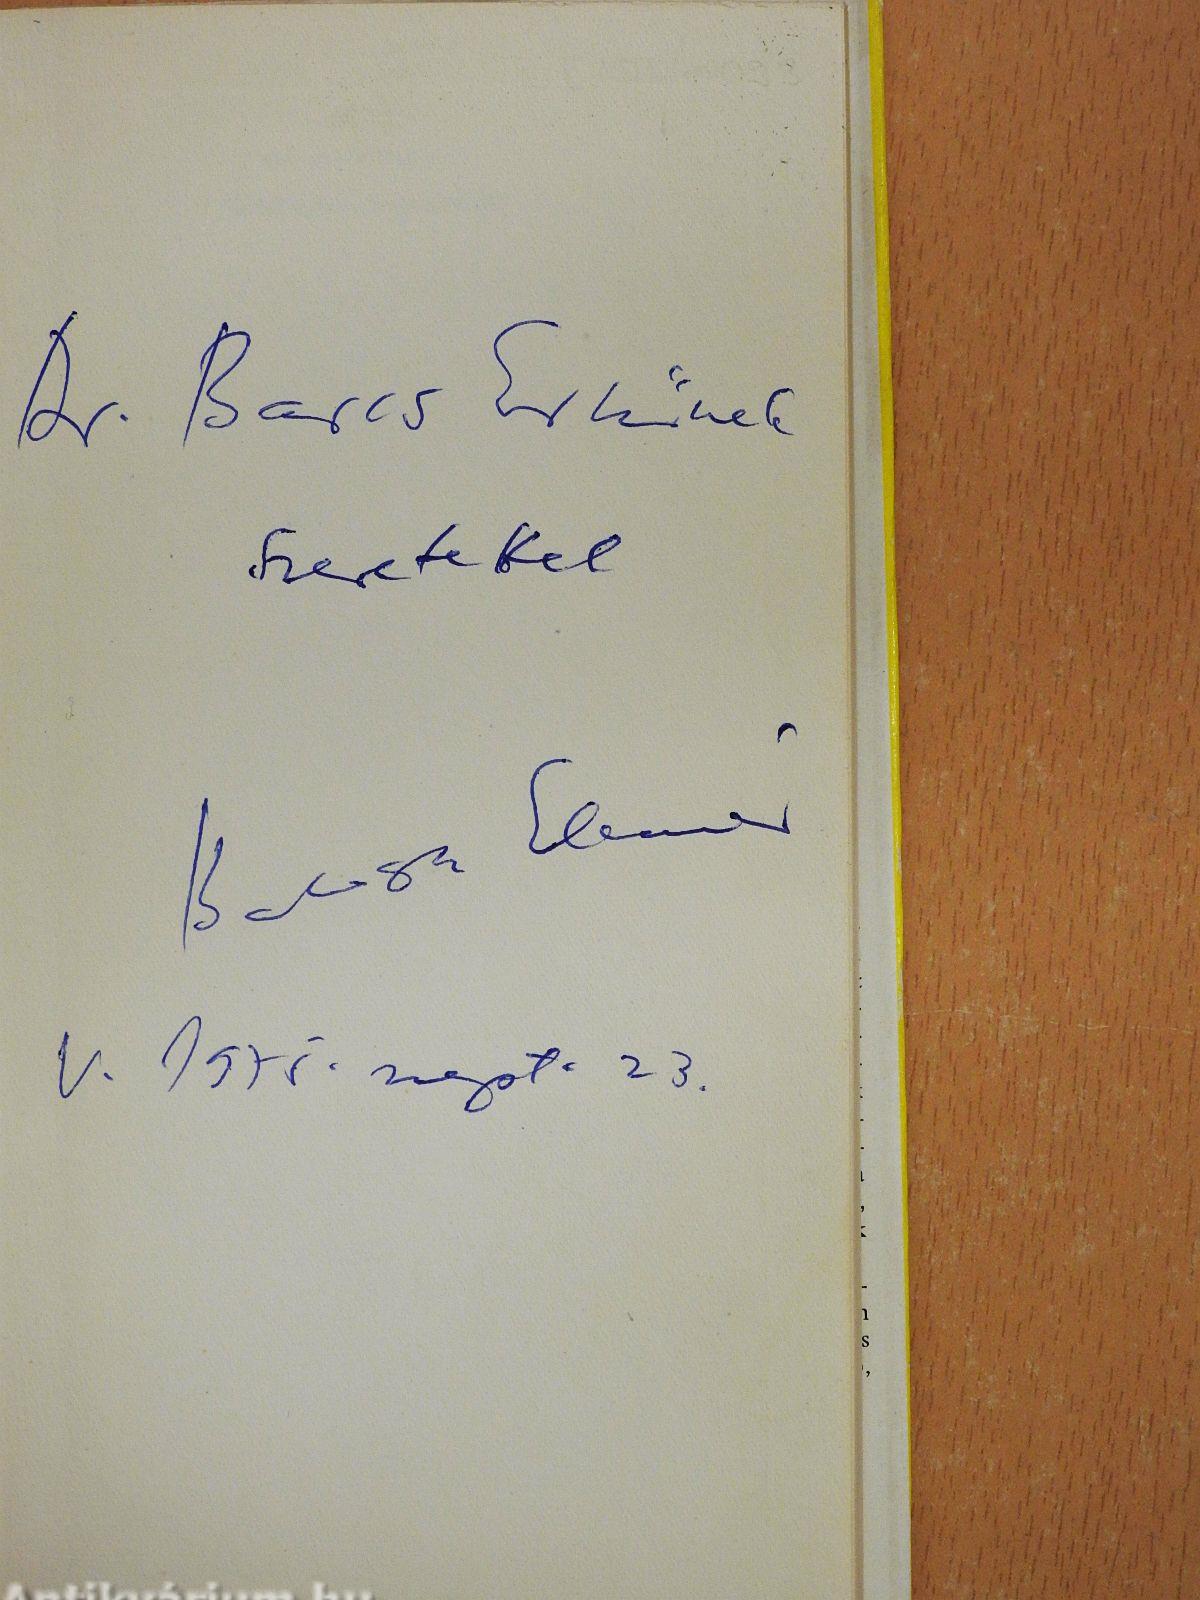 Dr. Barcs Ernőnek
szeretettel
Balogh Elemér
V. 1975. szept. 23.
Antikvárium.hu